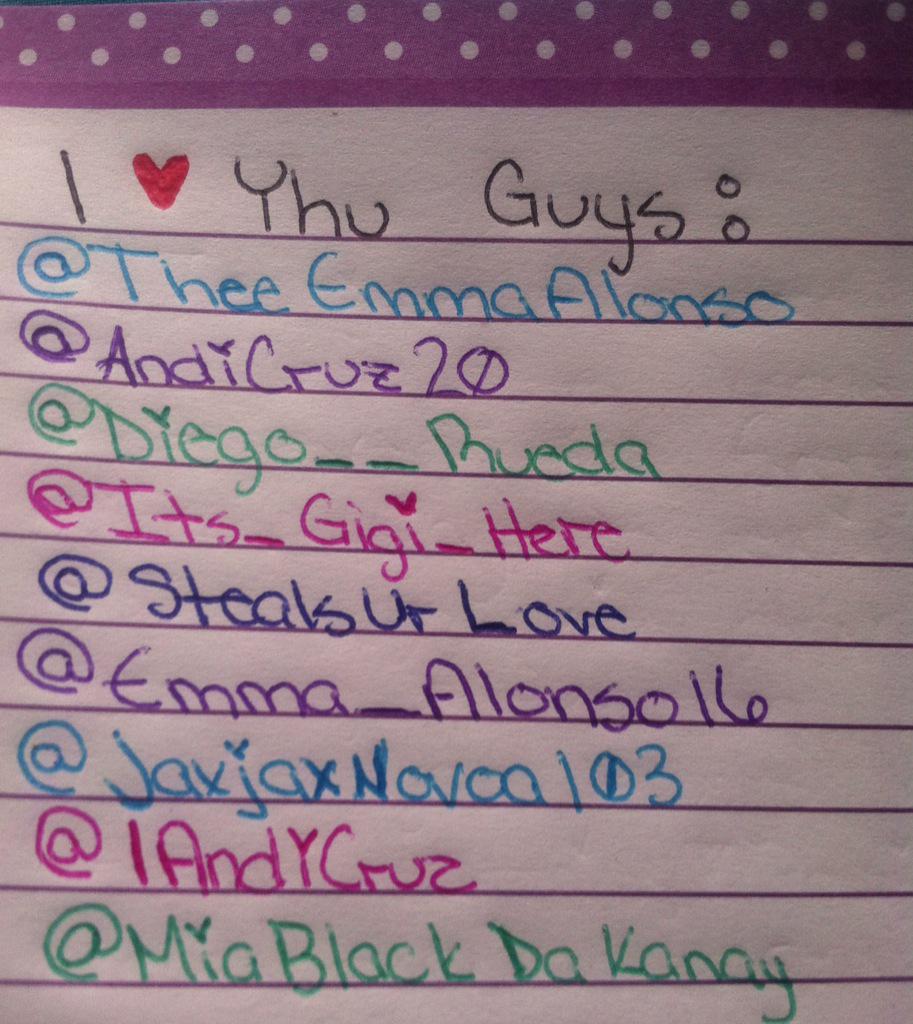 I ♥ Yhu Guys:
@TheeEmmaAlonso
@AndiCruz20
@Diego__Rueda
@Its_Gigi_Here
@StealsUrLove
@Emma_Alonso16
@JaxjaxNovoa103
@1AndYCruz
@MiaBlackDaKanay